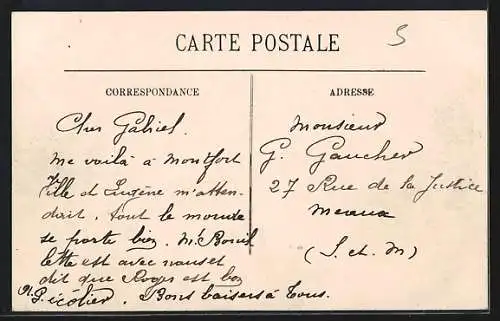 CARTE POSTALE
5
CORRESPONDANCE
ADRESSE
Cher Gabriel.
me voilà à Montfort
Fille d Eugène m'atten-
dait. tout le monde
se porte bien. Mr
est avec
dit que Roger est
Bons baisers à Tous.
Monsieur
G. Gaucher
27 Rue de la Justice
Meaux
(S. et M)